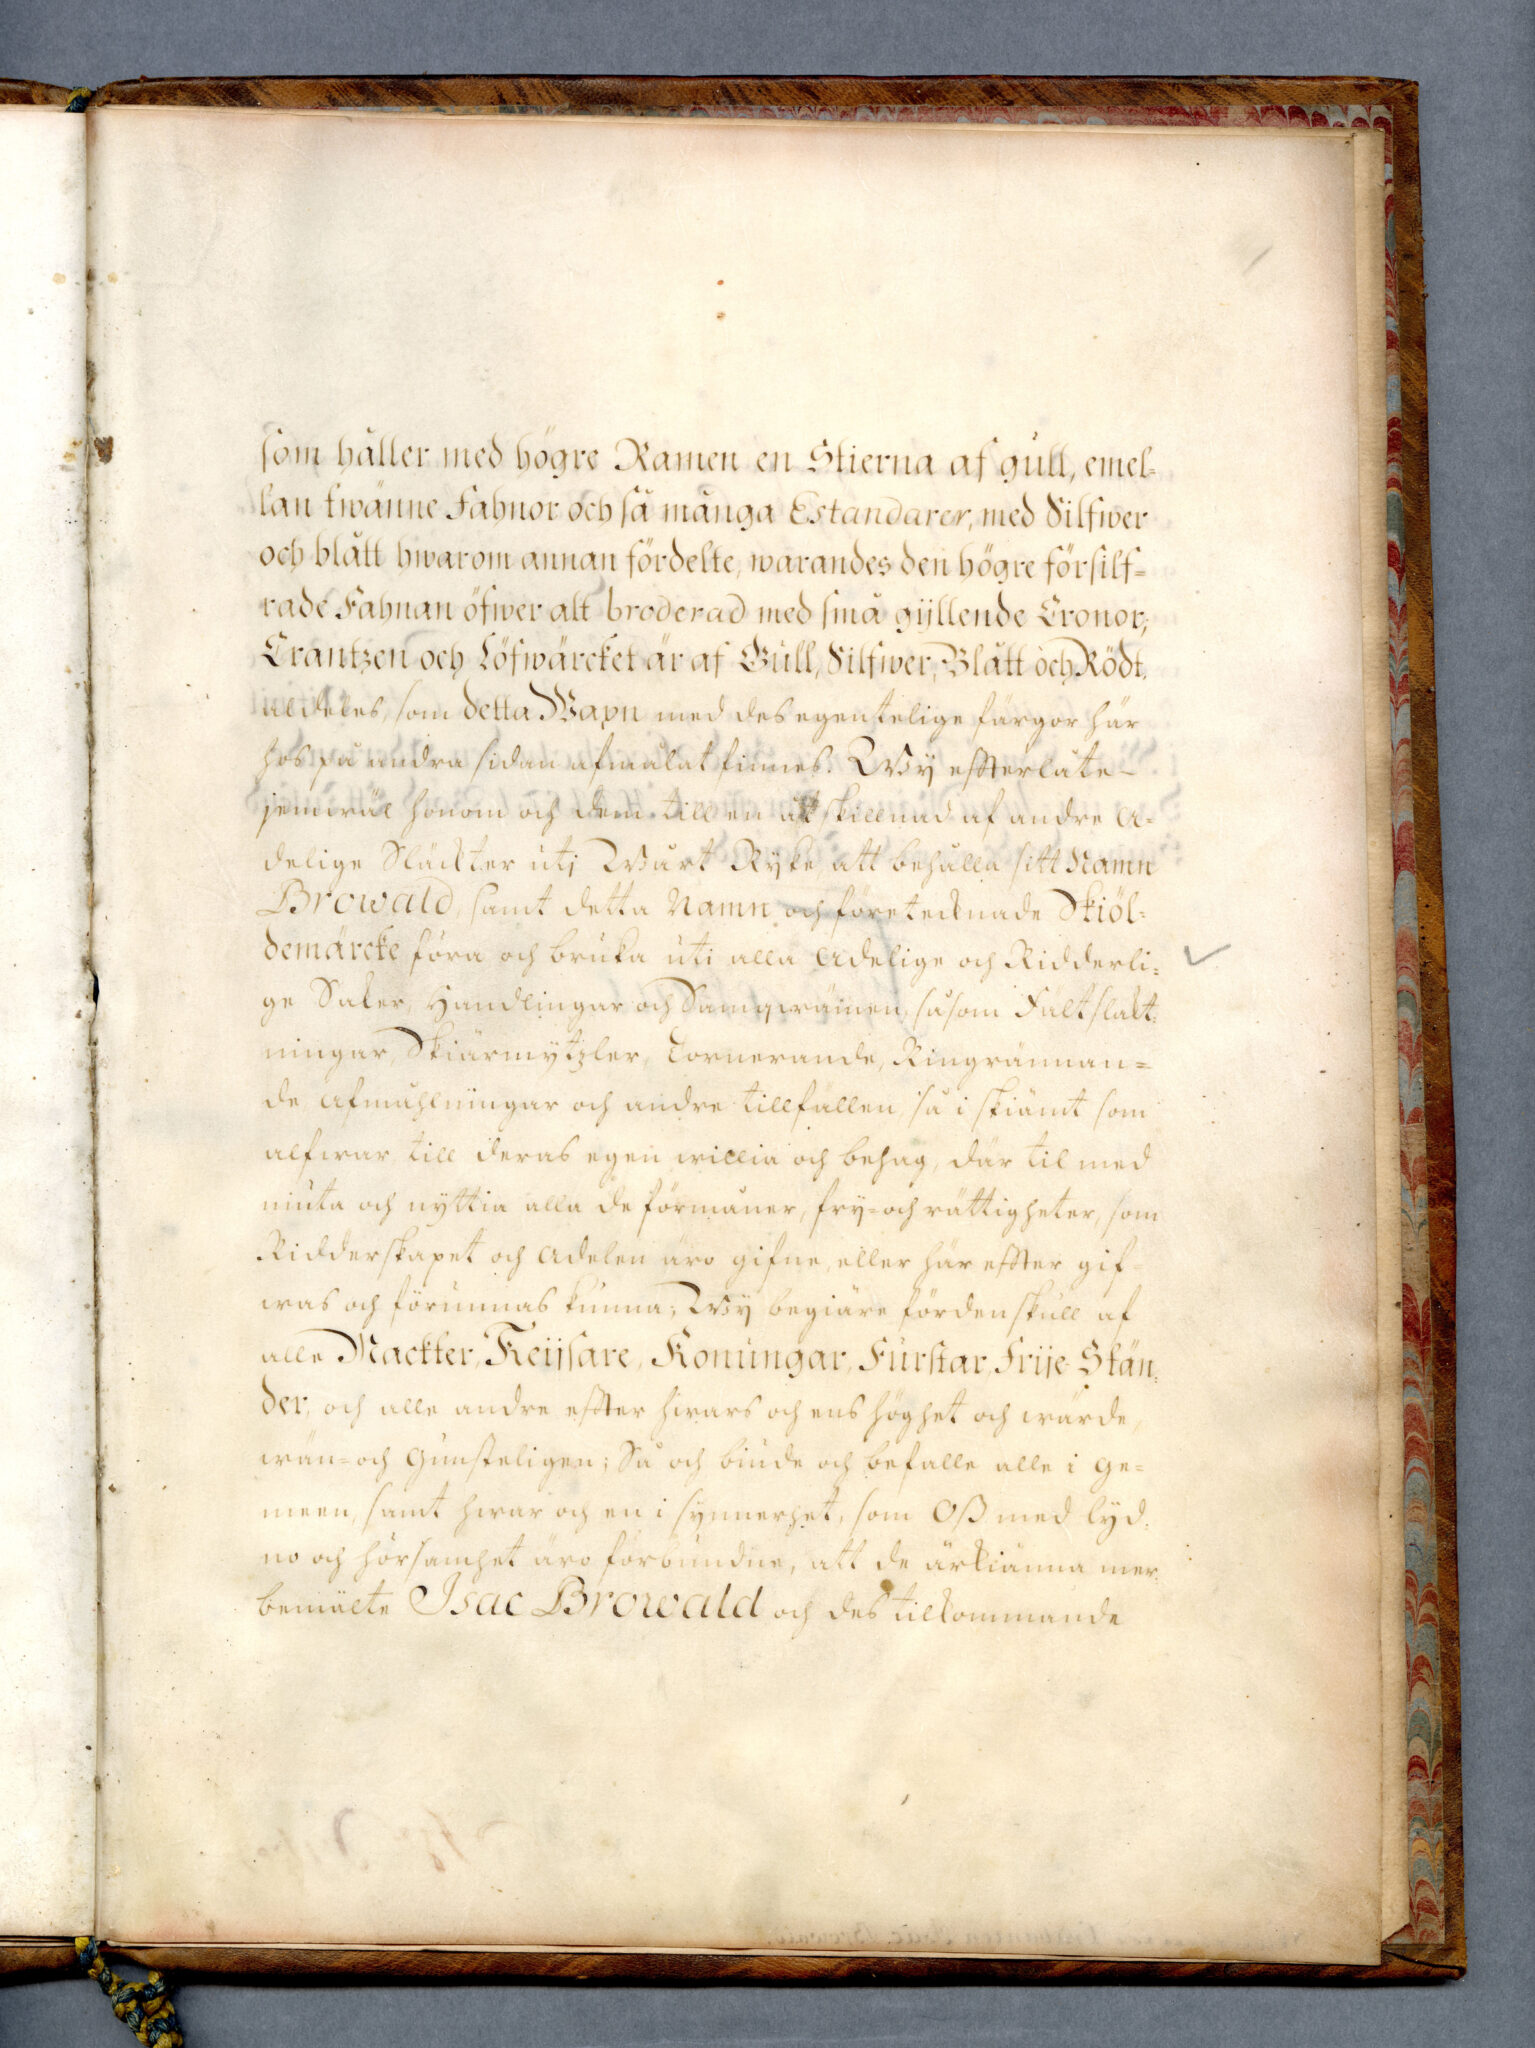 som håller med högre Ramen en Stierna af gull, emel-
lan twänne Fahnor och så många Estandarer, med Silfwer
och blått hwarom annan fördelte, warandes den högre försilf-
rade Fahnan öfwer alt broderad med små gyllende Cronor;
Crantzen och Löfwärcket är af Gull, Silfwer, Blått och Rödt,
aldeles, som detta Wapn med des egentelige färgor här
hos på andra sidan afmålat finnes. Wy effterlåte
jemwäl honom och dem till en åtskillnad af andre A-
delige Släckter uti Wårt Ryke, att behålla sitt Namn
Browald, samt detta Namn och företecknade Skiöl-
demärcke föra och bruka uti alla Adelige och Ridderli-
ge Saker, Handlingar och Samqwämen, såsom Fältslackt-
ningar, Skiärmytzler, Tornerande, Ringrännan-
de Afmåhlningar och andre tillfällen, så i skiämt som
alfwar, till deras egen willia och behag, där til med
niuta och nyttia alla de förmåner, fry- och rättigheter, som
Ridderskapet och Adelen äro gifne, eller här effter gif-
was och förunnas kunna; Wy begiäre fördenskull af
alle Mackter, Keijsare, Konungar, Furstar, Frije Stän-
der, och alle andre effter hwars och ens höghet och wärde,
wän- och Gunsteligen; Så och biude och befalle alle i ge-
meen, samt hwar och en i synnerhet, som Oß med lyd-
no och hörsamhet äro förbundne, att de ärkiänna mer-
bemälte Isac Browald och des tilkommande